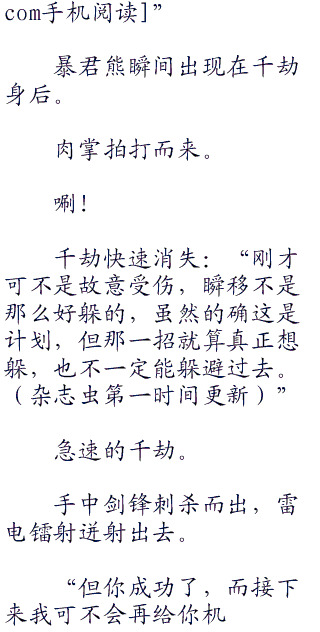 com手机阅读]”
暴君熊瞬间出现在千劫
身后。
肉掌拍打而来。
唰!
千劫快速消失:“刚才
可不是故意受伤,瞬移不是
那么好躲的,虽然的确这是
计划,但那一招就算真正想
躲,也不一定能躲避过去。
(杂志虫第一时间更新)”
急速的千劫。
手中剑锋刺杀而出,雷
电镭射迸射出去。
“但你成功了,而接下
来我可不会再给你机